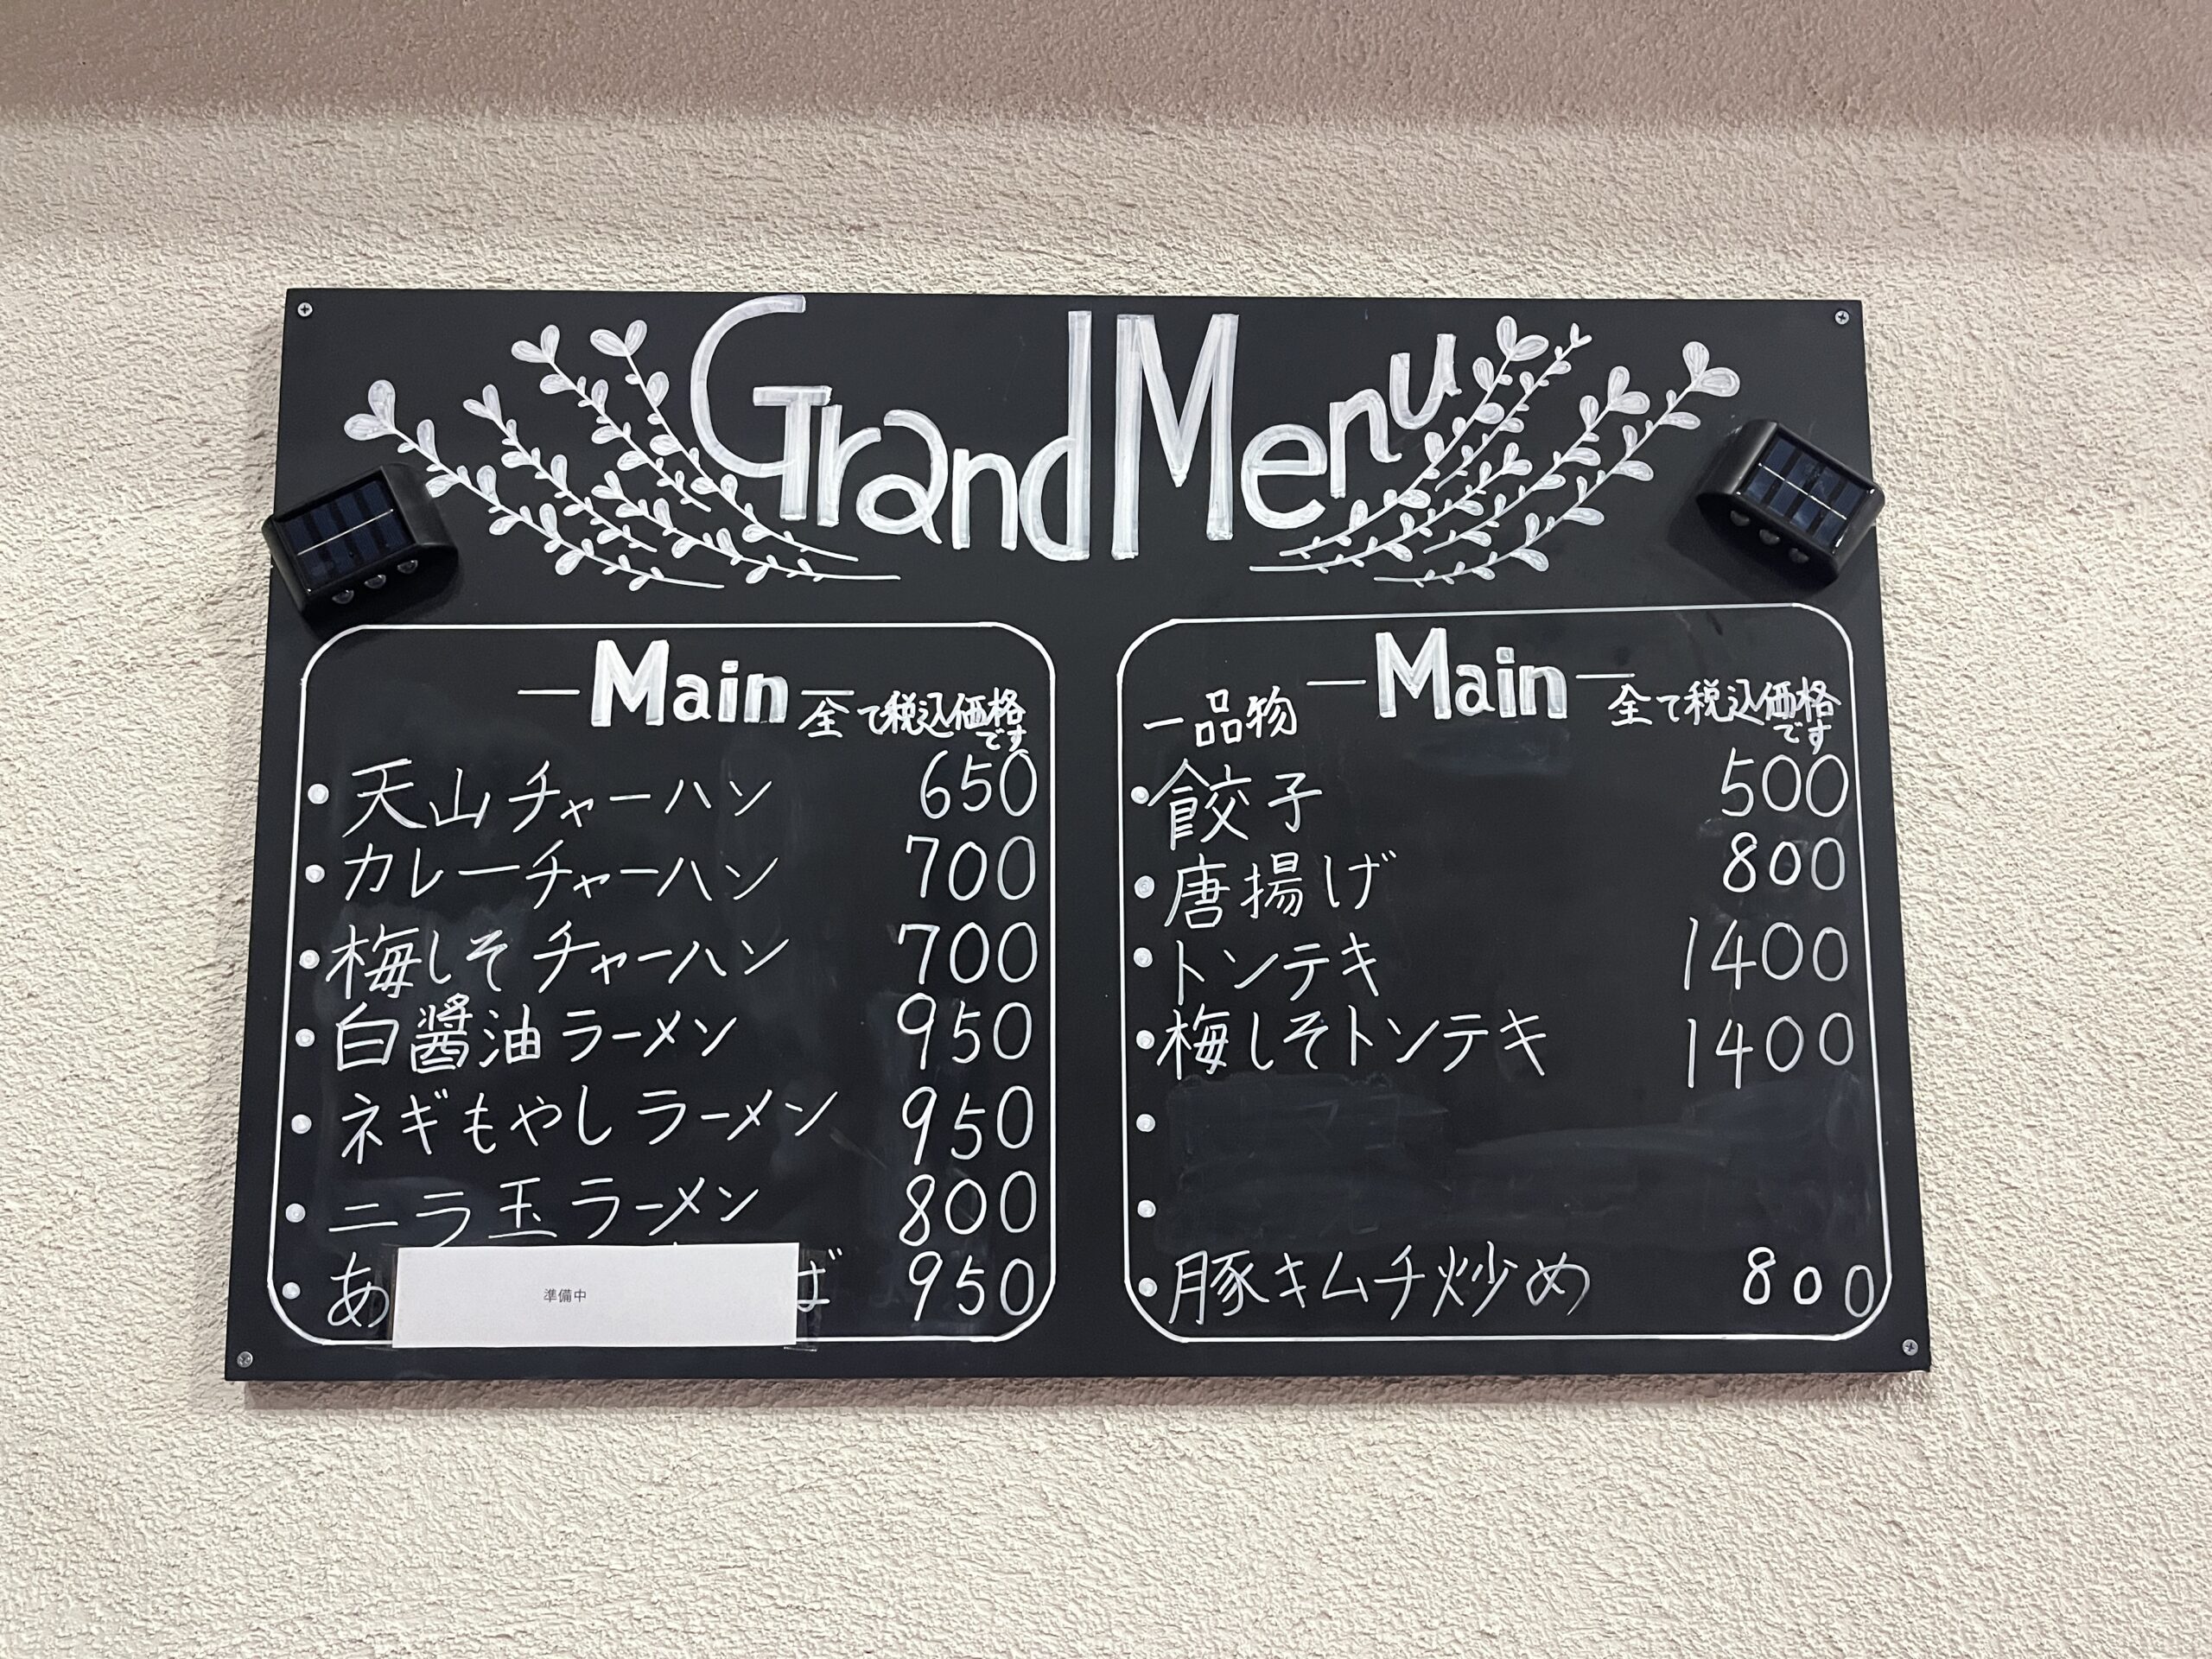 Grand Menu
Main
全て税込価格
です
・天山チャーハン 650
・カレーチャーハン 700
・梅しそチャーハン 700
・白醤油ラーメン 950
・ネギもやしラーメン 950
・ニラ玉ラーメン 800
・あ 準備中 ば 950
一品物 Main
全て税込価格
です
・餃子 500
・唐揚げ 800
・トンテキ 1400
・梅しそトンテキ 1400
・
・
・豚キムチ炒め 800